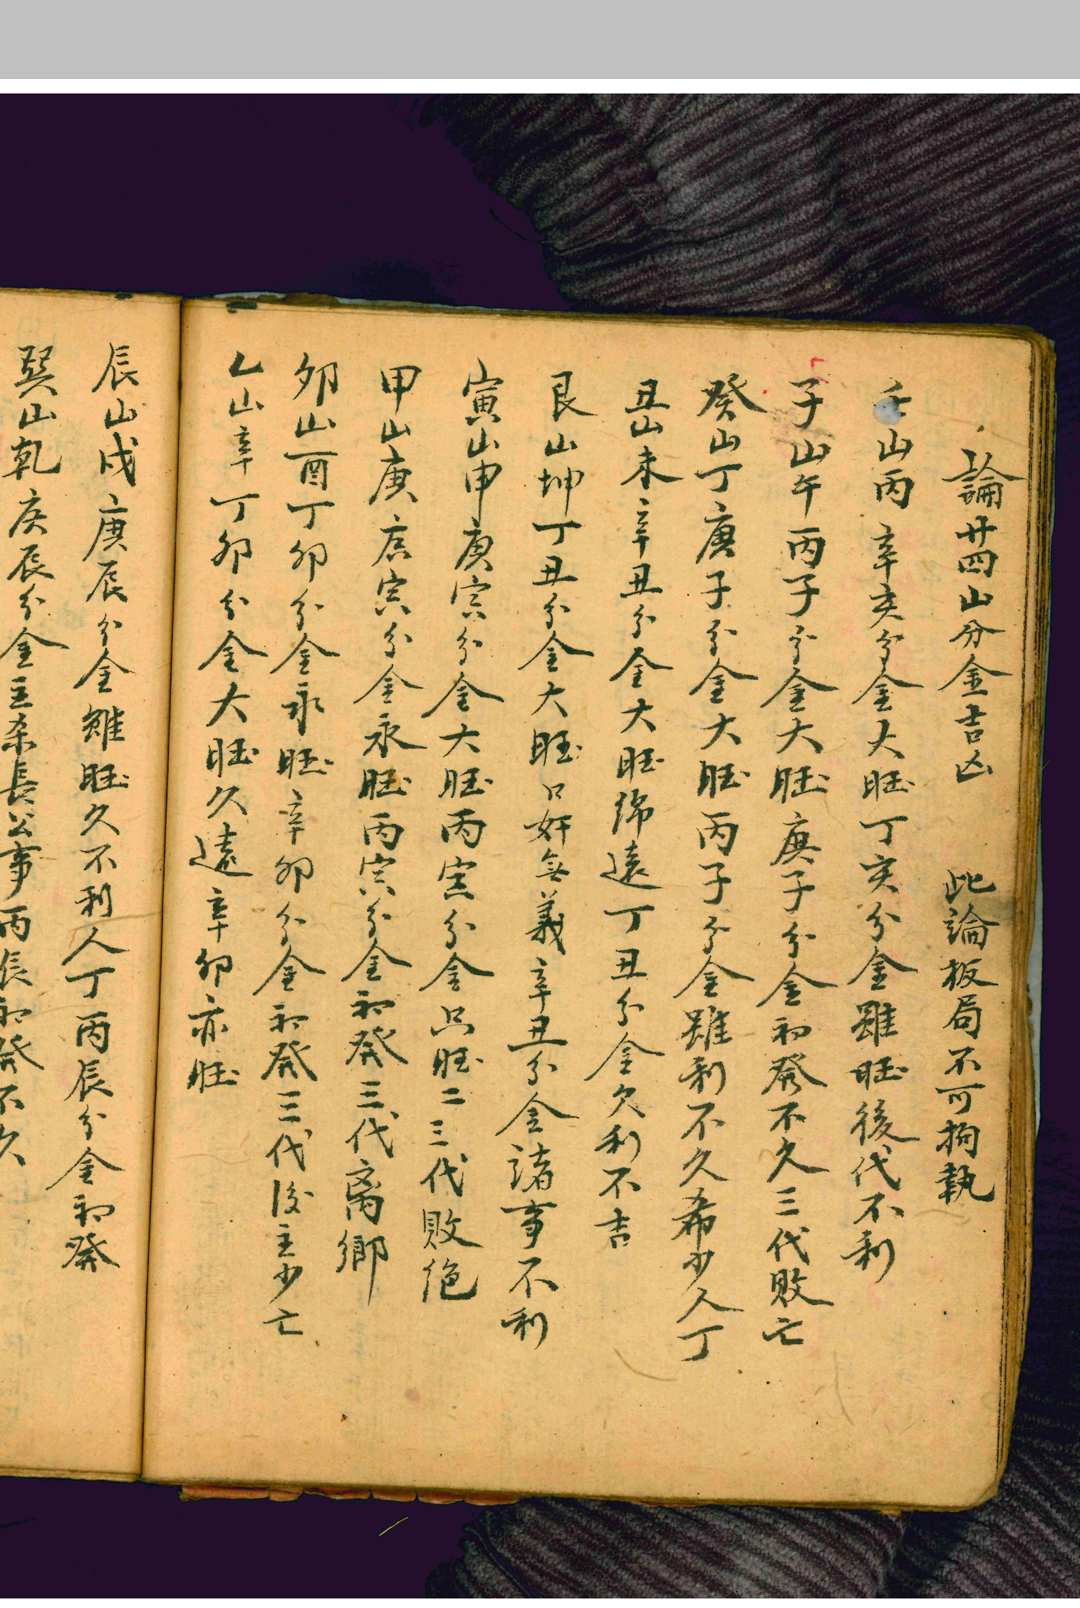 論廿四山分金吉凶 此論板局不可拘執
壬山丙辛亥分金大旺丁亥分金雖旺後代不利
子山午丙子分金大旺庚子分金初發不久三代敗亡
癸山丁庚子分金大旺丙子分金雖利不久希少人丁
丑山未辛丑分金大旺綿遠丁丑分金欠利不吉
艮山坤丁丑分金大旺只奸無義辛丑分金諸事不利
寅山申庚寅分金大旺丙寅分金只旺二三代敗絕
甲山庚庚寅分金永旺丙寅分金初發三代离鄉
卯山酉丁卯分金永旺辛卯分金初發三代後主少亡
乙山辛丁卯分金大旺久遠辛卯亦旺
辰山戌庚辰分金雖旺久不利人丁丙辰分金初發
巽山乾庚辰分金主杀長公事丙辰初發不久